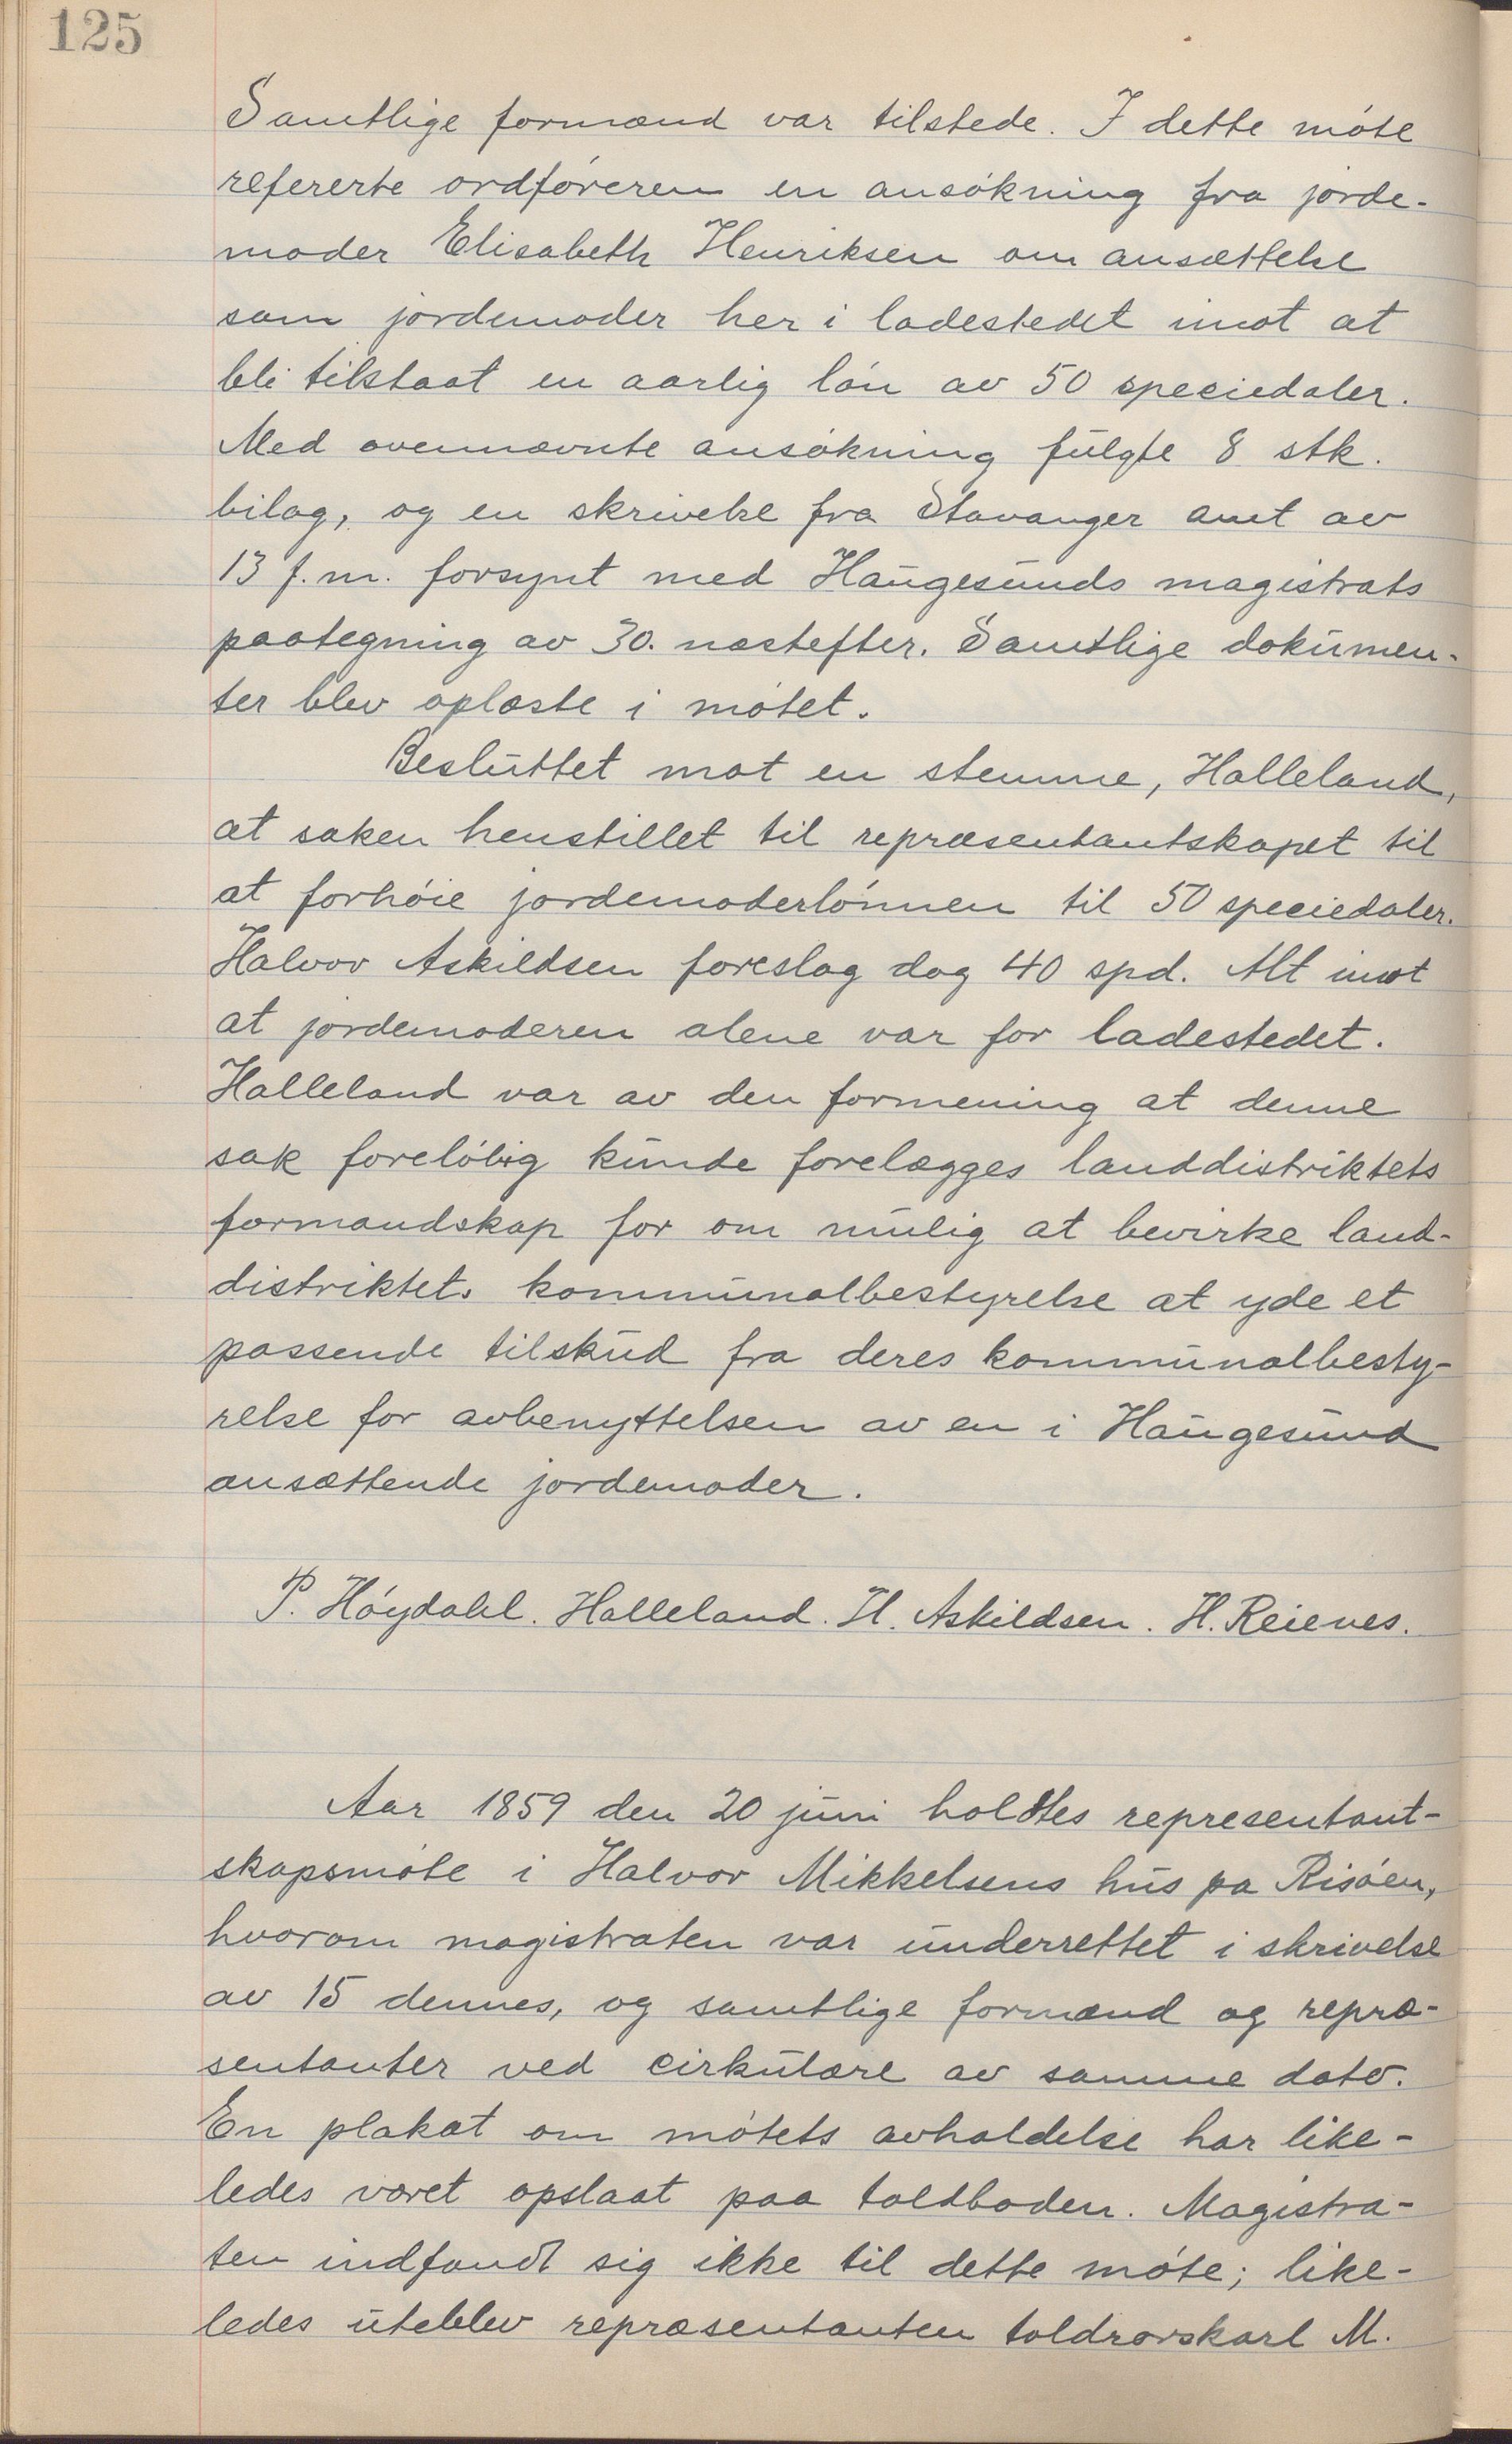 125
Samtlige formænd var tilstede. I dette møte
refererte ordføreren en ansøkning fra jorde-
moder Elisabeth Henriksen om ansættelse
som jordemoder her i ladestedet imot at
bli tilstaat en aarlig løn av 50 speciedaler.
Med ovennævnte ansøkning fulgte 8 stk.
bilag, og en skrivelse fra Stavanger amt av
13 f.m. forsynt med Haugesunds magistrats
paategning av 30. næstefter. Samtlige dokumen-
ter blev oplæste i møtet.
Besluttet mot en stemme, Halleland,
at saken henstillet til repræsentantskapet til
at forhøie jordemoderlønnen til 50 speciedaler.
Halvor Askildsen foreslog dog 40 spd. Alt imot
at jordemoderen alene var for ladestedet.
Halleland var av den formening at denne
sak foreløbig kunde forelægges landdistriktets
formandskap for om mulig at bevirke land-
distriktets kommunalbestyrelse at yde et
passende tilskud fra deres kommunalbesty-
relse for avbenyttelsen av en i Haugesund
ansættende jordemoder.
P. Høydahl. Halleland. H. Askildsen. H. Reienes.
Aar 1859 den 20 juni holdtes representant-
skapsmøte i Halvor Mikkelsens hus pa Risøen,
hvorom magistraten var underrettet i skrivelse
av 15 dennes, og samtlige formænd og repræ-
sentanter ved cirkulære av samme dato.
En plakat om møtets avholdelse har like-
ledes været opslaat paa toldboden. Magistra-
ten indfandt sig ikke til dette møte; like-
ledes uteblev repræsentanten toldrorskarl M.